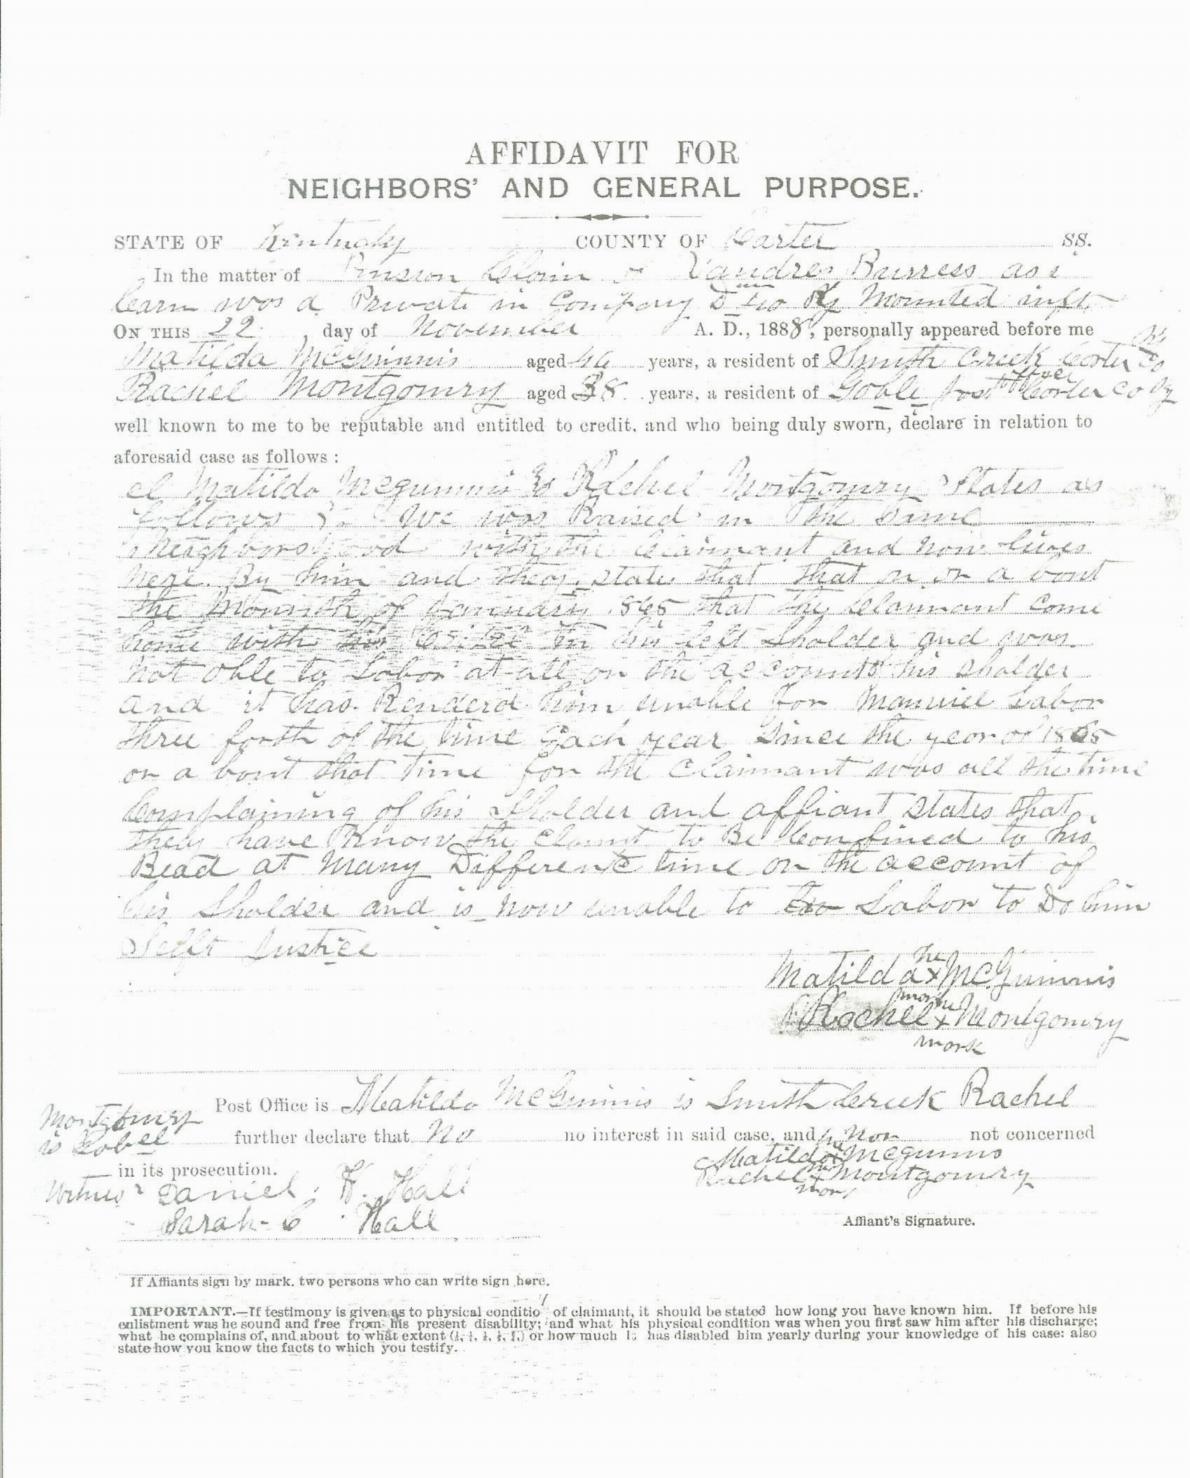 AFFIDAVIT FOR
NEIGHBORS' AND GENERAL PURPOSE.
STATE OF Kentucky COUNTY OF Carter SS.
In the matter of Pension Claim of Vandres Burress as i
learn was a Private in Company D Ky Mounted inft
ON THIS 22 day of November A. D., 1888, personally appeared before me
Matilda McGuinnis aged years, a resident of Smith Creek Carter Co Ky
Rachel Montgomry aged 38 years, a resident of Goble post office Carter Co Ky
well known to me to be reputable and entitled to credit, and who being duly sworn, declare in relation to
aforesaid case as follows :
Matilda Mcguinnis & Rachel Montgomry States as
follows We was Raised in the Same
Neighborshood with the Claimant and now lives
here By him and they state that that on or a bout
the Monnth of January 1865 that the Claimant come
home with his in his left Sholder and was
not able to Labor at all on the account his sholder
and it has Renderd him unable for Manuel Labor
three forth of the time Each year Since the year of 1865
or a bout that time for the Claimant was all the time
Complaining of his Sholder and affiant States that
they have Know the Claimt to Be Confined to his
Bead at Many Different time on the account of
his Sholder and is now unable to too Labor to Do him
Selft Justice
her
Matilda x McGuinnis
mark
Rachel x Montgomry
mark
Post Office is Matilda McGuinnis is Smith Creek Rachel
Montgomry
is Gobel further declare that No no interest in said case, and Non not concerned
in its prosecution.
Matilda x Mcguinnis
Rachel x Montgomry
Witness Daniel F. Hall
Sarah C Hall
Affiant's Signature.
If Affiants sign by mark, two persons who can write sign here.
IMPORTANT.—If testimony is given as to physical conditio of claimant, it should be stated how long you have known him. If before his
enlistment was he sound and free from his present disability; and what his physical condition was when you first saw him after his discharge;
what he complains of, and about to what extent or how much has disabled him yearly during your knowledge of his case: also
state how you know the facts to which you testify.